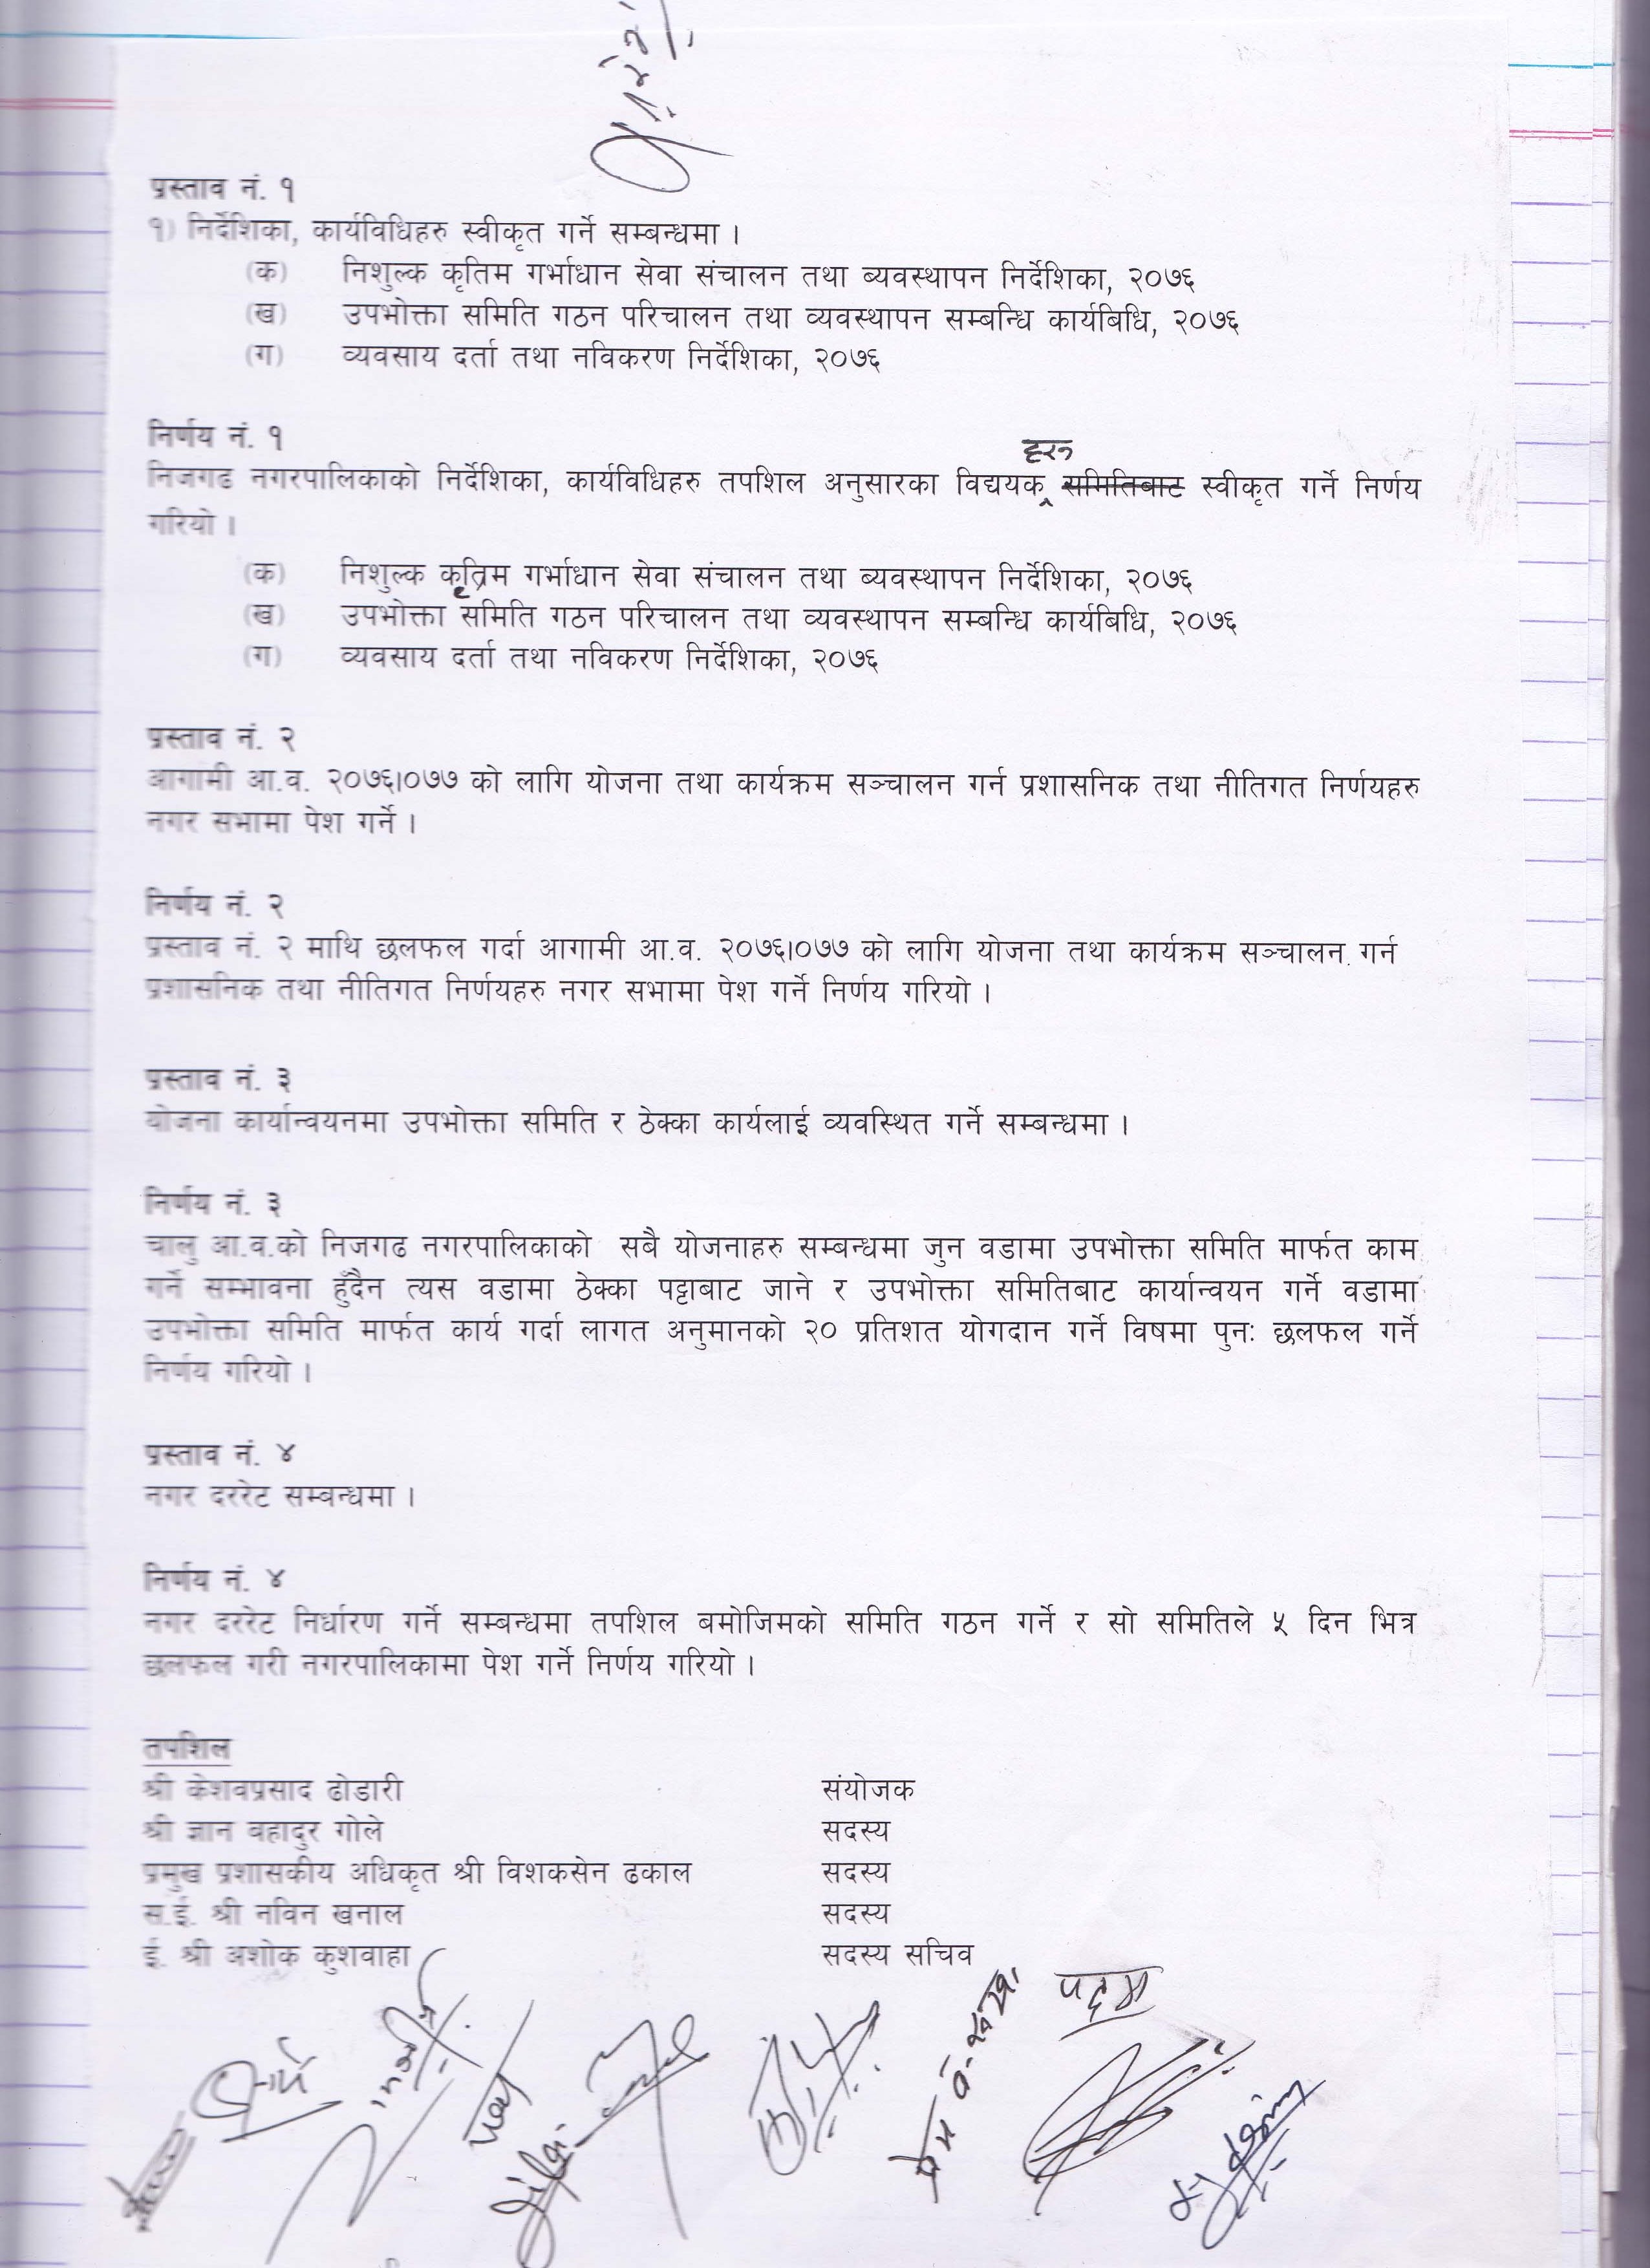 प्रस्ताव नं. १
१) निर्देशिका, कार्यविधिहरु स्वीकृत गर्ने सम्बन्धमा ।
(क) निशुल्क कृतिम गर्भाधान सेवा संचालन तथा ब्यवस्थापन निर्देशिका, २०७६
(ख) उपभोक्ता समिति गठन परिचालन तथा व्यवस्थापन सम्बन्धि कार्यबिधि, २०७६
(ग) व्यवसाय दर्ता तथा नविकरण निर्देशिका, २०७६
निर्णय नं. १
हरु
निजगढ नगरपालिकाको निर्देशिका, कार्यविधिहरु तपशिल अनुसारका विद्ययक समितिबाट स्वीकृत गर्ने निर्णय
गरियो ।
(क) निशुल्क कृत्रिम गर्भाधान सेवा संचालन तथा ब्यवस्थापन निर्देशिका, २०७६
(ख) उपभोक्ता समिति गठन परिचालन तथा व्यवस्थापन सम्बन्धि कार्यबिधि, २०७६
(ग) व्यवसाय दर्ता तथा नविकरण निर्देशिका, २०७६
प्रस्ताव नं. २
आगामी आ.व. २०७६।०७७ को लागि योजना तथा कार्यक्रम सञ्चालन गर्न प्रशासनिक तथा नीतिगत निर्णयहरु
नगर सभामा पेश गर्ने ।
निर्णय नं. २
प्रस्ताव नं. २ माथि छलफल गर्दा आगामी आ.व. २०७६।०७७ को लागि योजना तथा कार्यक्रम सञ्चालन गर्न
प्रशासनिक तथा नीतिगत निर्णयहरु नगर सभामा पेश गर्ने निर्णय गरियो ।
प्रस्ताव नं. ३
योजना कार्यान्वयनमा उपभोक्ता समिति र ठेक्का कार्यलाई व्यवस्थित गर्ने सम्बन्धमा ।
निर्णय नं. ३
चालु आ.व.को निजगढ नगरपालिकाको सबै योजनाहरु सम्बन्धमा जुन वडामा उपभोक्ता समिति मार्फत काम
गर्ने सम्भावना हुँदैन त्यस वडामा ठेक्का पट्टाबाट जाने र उपभोक्ता समितिबाट कार्यान्वयन गर्ने वडामा
उपभोक्ता समिति मार्फत कार्य गर्दा लागत अनुमानको २० प्रतिशत योगदान गर्ने विषमा पुनः छलफल गर्ने
निर्णय गरियो ।
प्रस्ताव नं. ४
नगर दररेट सम्बन्धमा ।
निर्णय नं. ४
नगर दररेट निर्धारण गर्ने सम्बन्धमा तपशिल बमोजिमको समिति गठन गर्ने र सो समितिले ५ दिन भित्र
छलफल गरी नगरपालिकामा पेश गर्ने निर्णय गरियो ।
तपशिल
श्री केशवप्रसाद ढोडारी संयोजक
श्री ज्ञान बहादुर गोले सदस्य
प्रमुख प्रशासकीय अधिकृत श्री विशकसेन ढकाल सदस्य
स.ई. श्री नविन खनाल सदस्य
ई. श्री अशोक कुशवाहा सदस्य सचिव
पदम